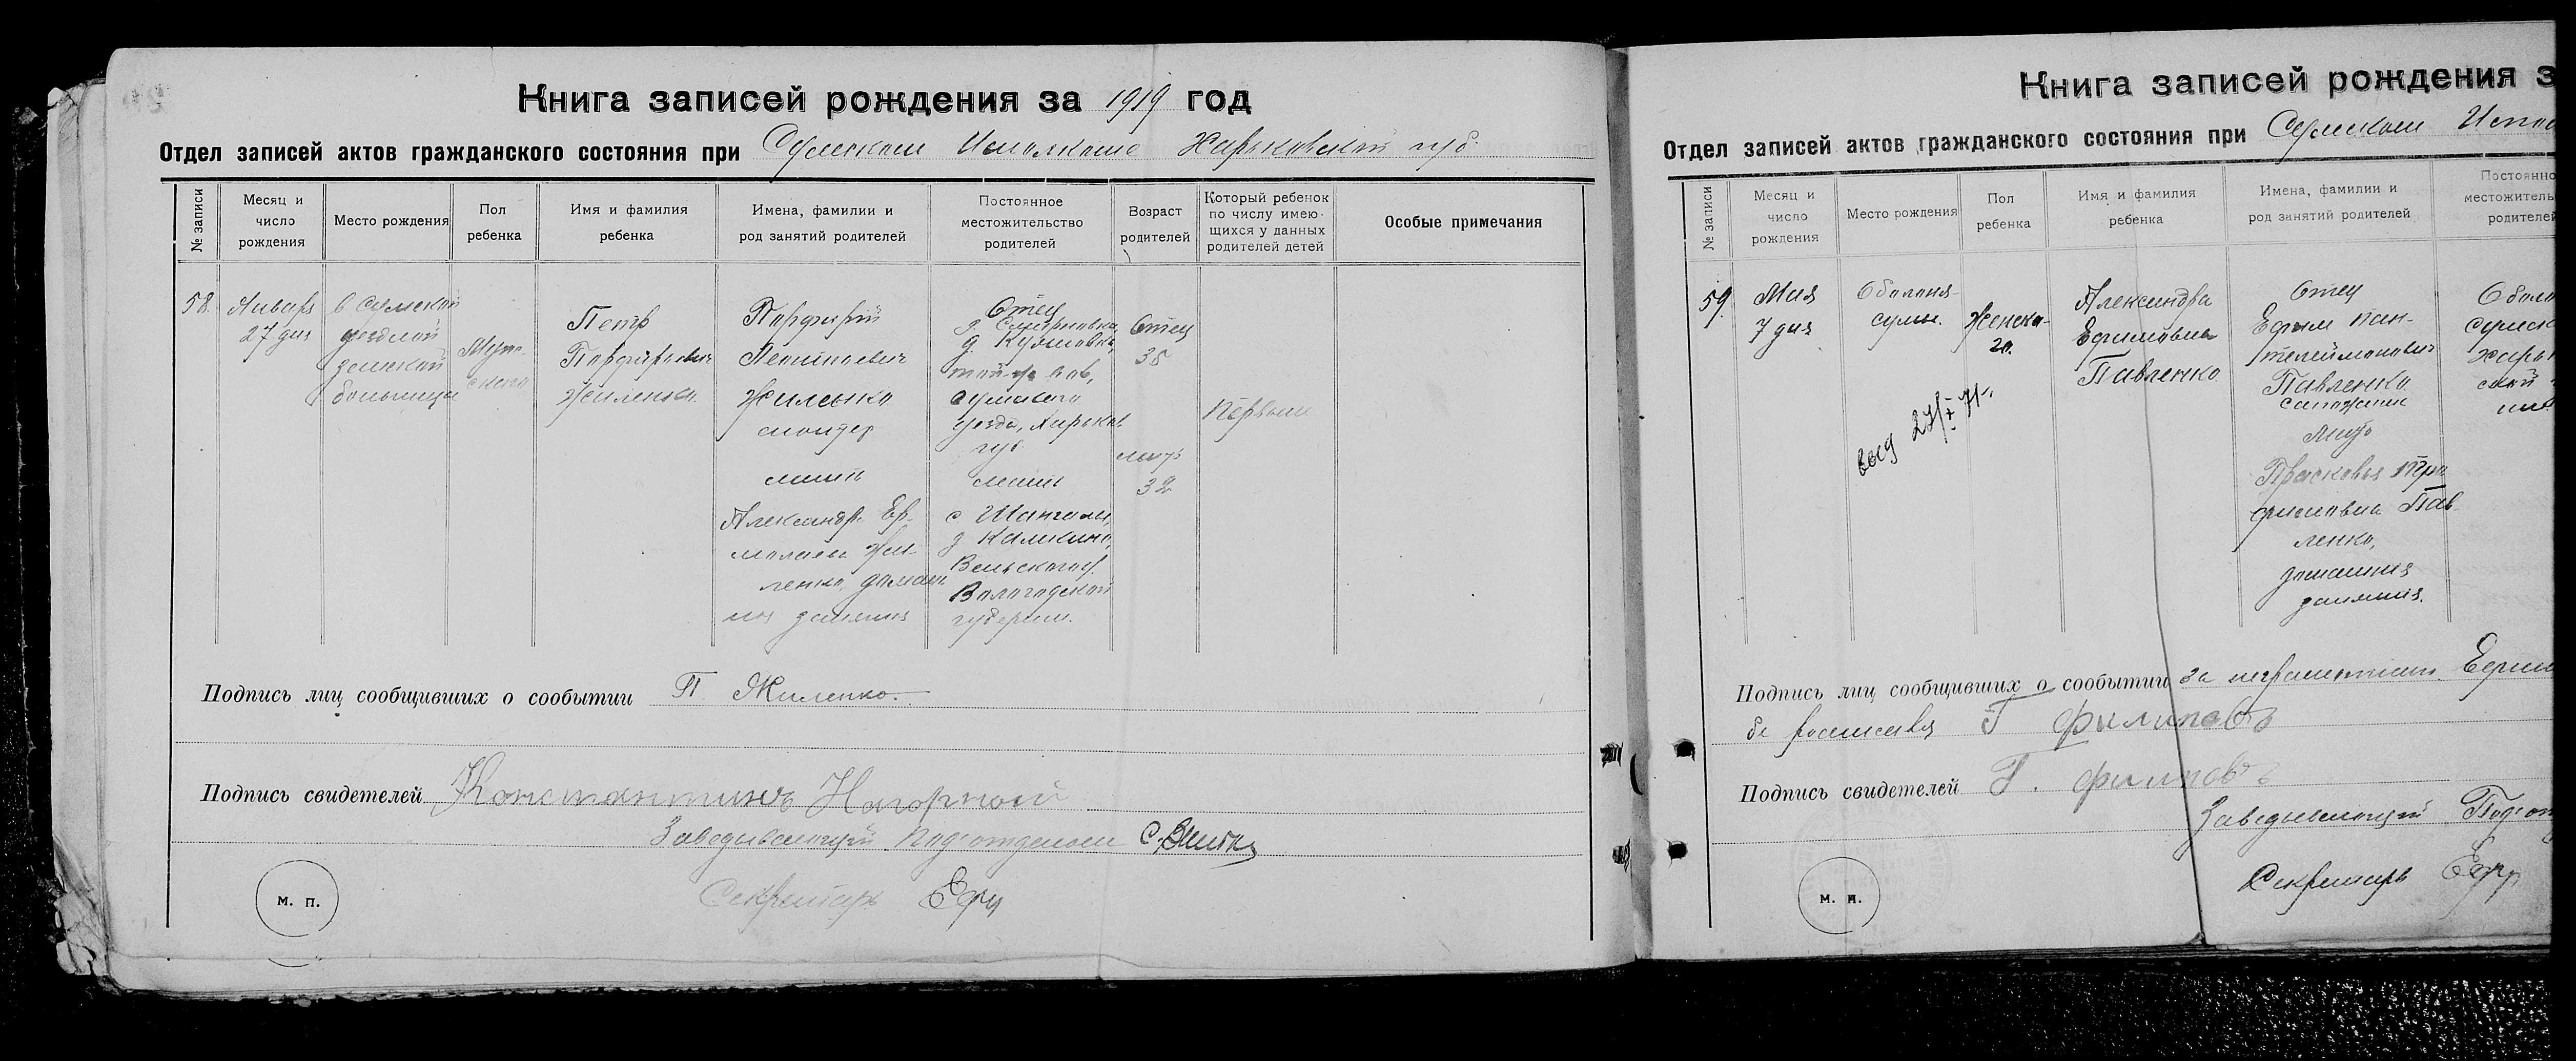 Книга записей рождения за 1919 год
Отдел записей актов гражданского состояния при Сумском Исполкоме Харьковской губ.
№ записи
Месяц и
число
рождения
Место рождения
Пол
ребенка
Имя и фамилия
ребенка
Имена, фамилии и
род занятий родителей
Постоянное
местожительство
родителей
Возраст
родителей
Который ребенок
по числу имею-
щихся у данных
родителей детей
Особые примечания
58.
Января
27 дня
в Сумской
уездной
земской
больнице
Муж-
ского
Петр
Порфирьевич
Жиленко.
Порфирий
Леонтиевич
Жиленко
монтер
мать
Александр. Ер-
молаев. Жи-
ленко, домаш
ния занятия
Отец
Сумского
уезда, Харьков
губ.
мать
с Шангалы,
д Каликино,
Вельского у.
Вологодской
губернии.
Отец
38
мать
32
Первый
Подпись лиц сообщивших о сообытии П Жиленко.
Подпись свидетелей Константинъ Нагорной
Заведывающий Подотделом
Секретарь
м. п.
Книга записей рождения з
Отдел записей актов гражданского состояния при Сумском Испол
№ записи
Месяц и
число
рождения
Место рождения
Пол
ребенка
Имя и фамилия
ребенка
Имена, фамилии и
род занятий родителей
Постоянно
местожитель
родителей
59.
Мая
7 дня
Оболоня-
Сумы.
Женско-
го.
Александра
Ефимовна
Павленко
Отец
Ефим Пан-
телеймонович
Павленко
сапожник
Мать
Прасковья Тро
фимовна Пав
ленко,
домашния
занятия.
Оболо
Сумск
Харьк
ской
выд 27/X 71.
Подпись лиц сообщивших о сообытии за неграмотного Ефим
Г Филиповъ
Подпись свидетелей Г. Филиповъ
Заведывающий Подот
Секретарь
м. п.